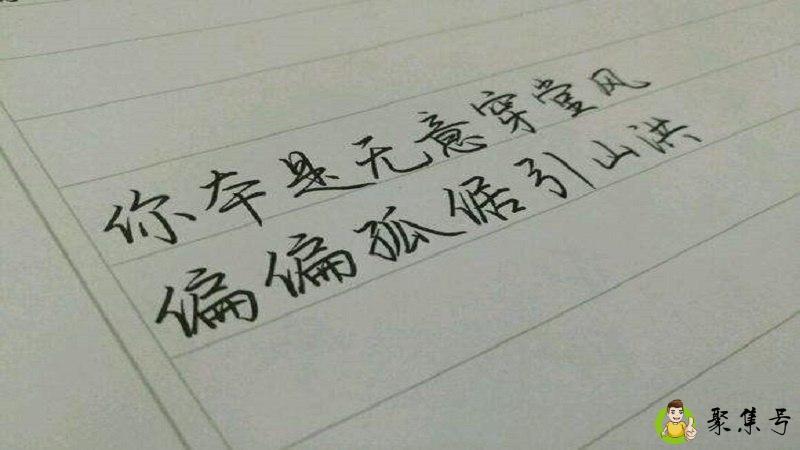 你本是无意穿堂风
偏偏孤倨引山洪
聚集号